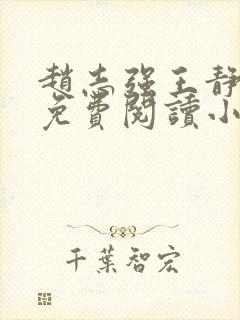 趙志强王静
免費閱讀小
千葉智宏